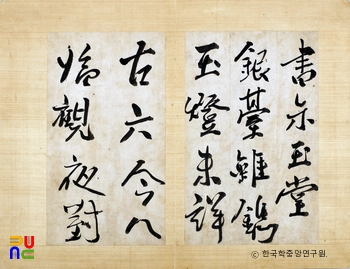 書示玉堂
銀臺雖鐫
玉燈未詳
古六今八
觀夜對
ⓒ 한국학중앙연구원.